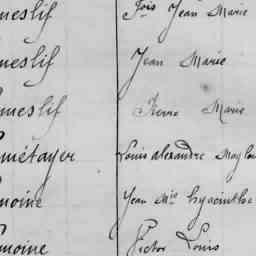 meslif Fois Jean Marie
meslif Jean Marie
meslif Pierre Marie
métayer Louis Alexandre
moine Jean Mie hyacinthe
moine Victor Louis